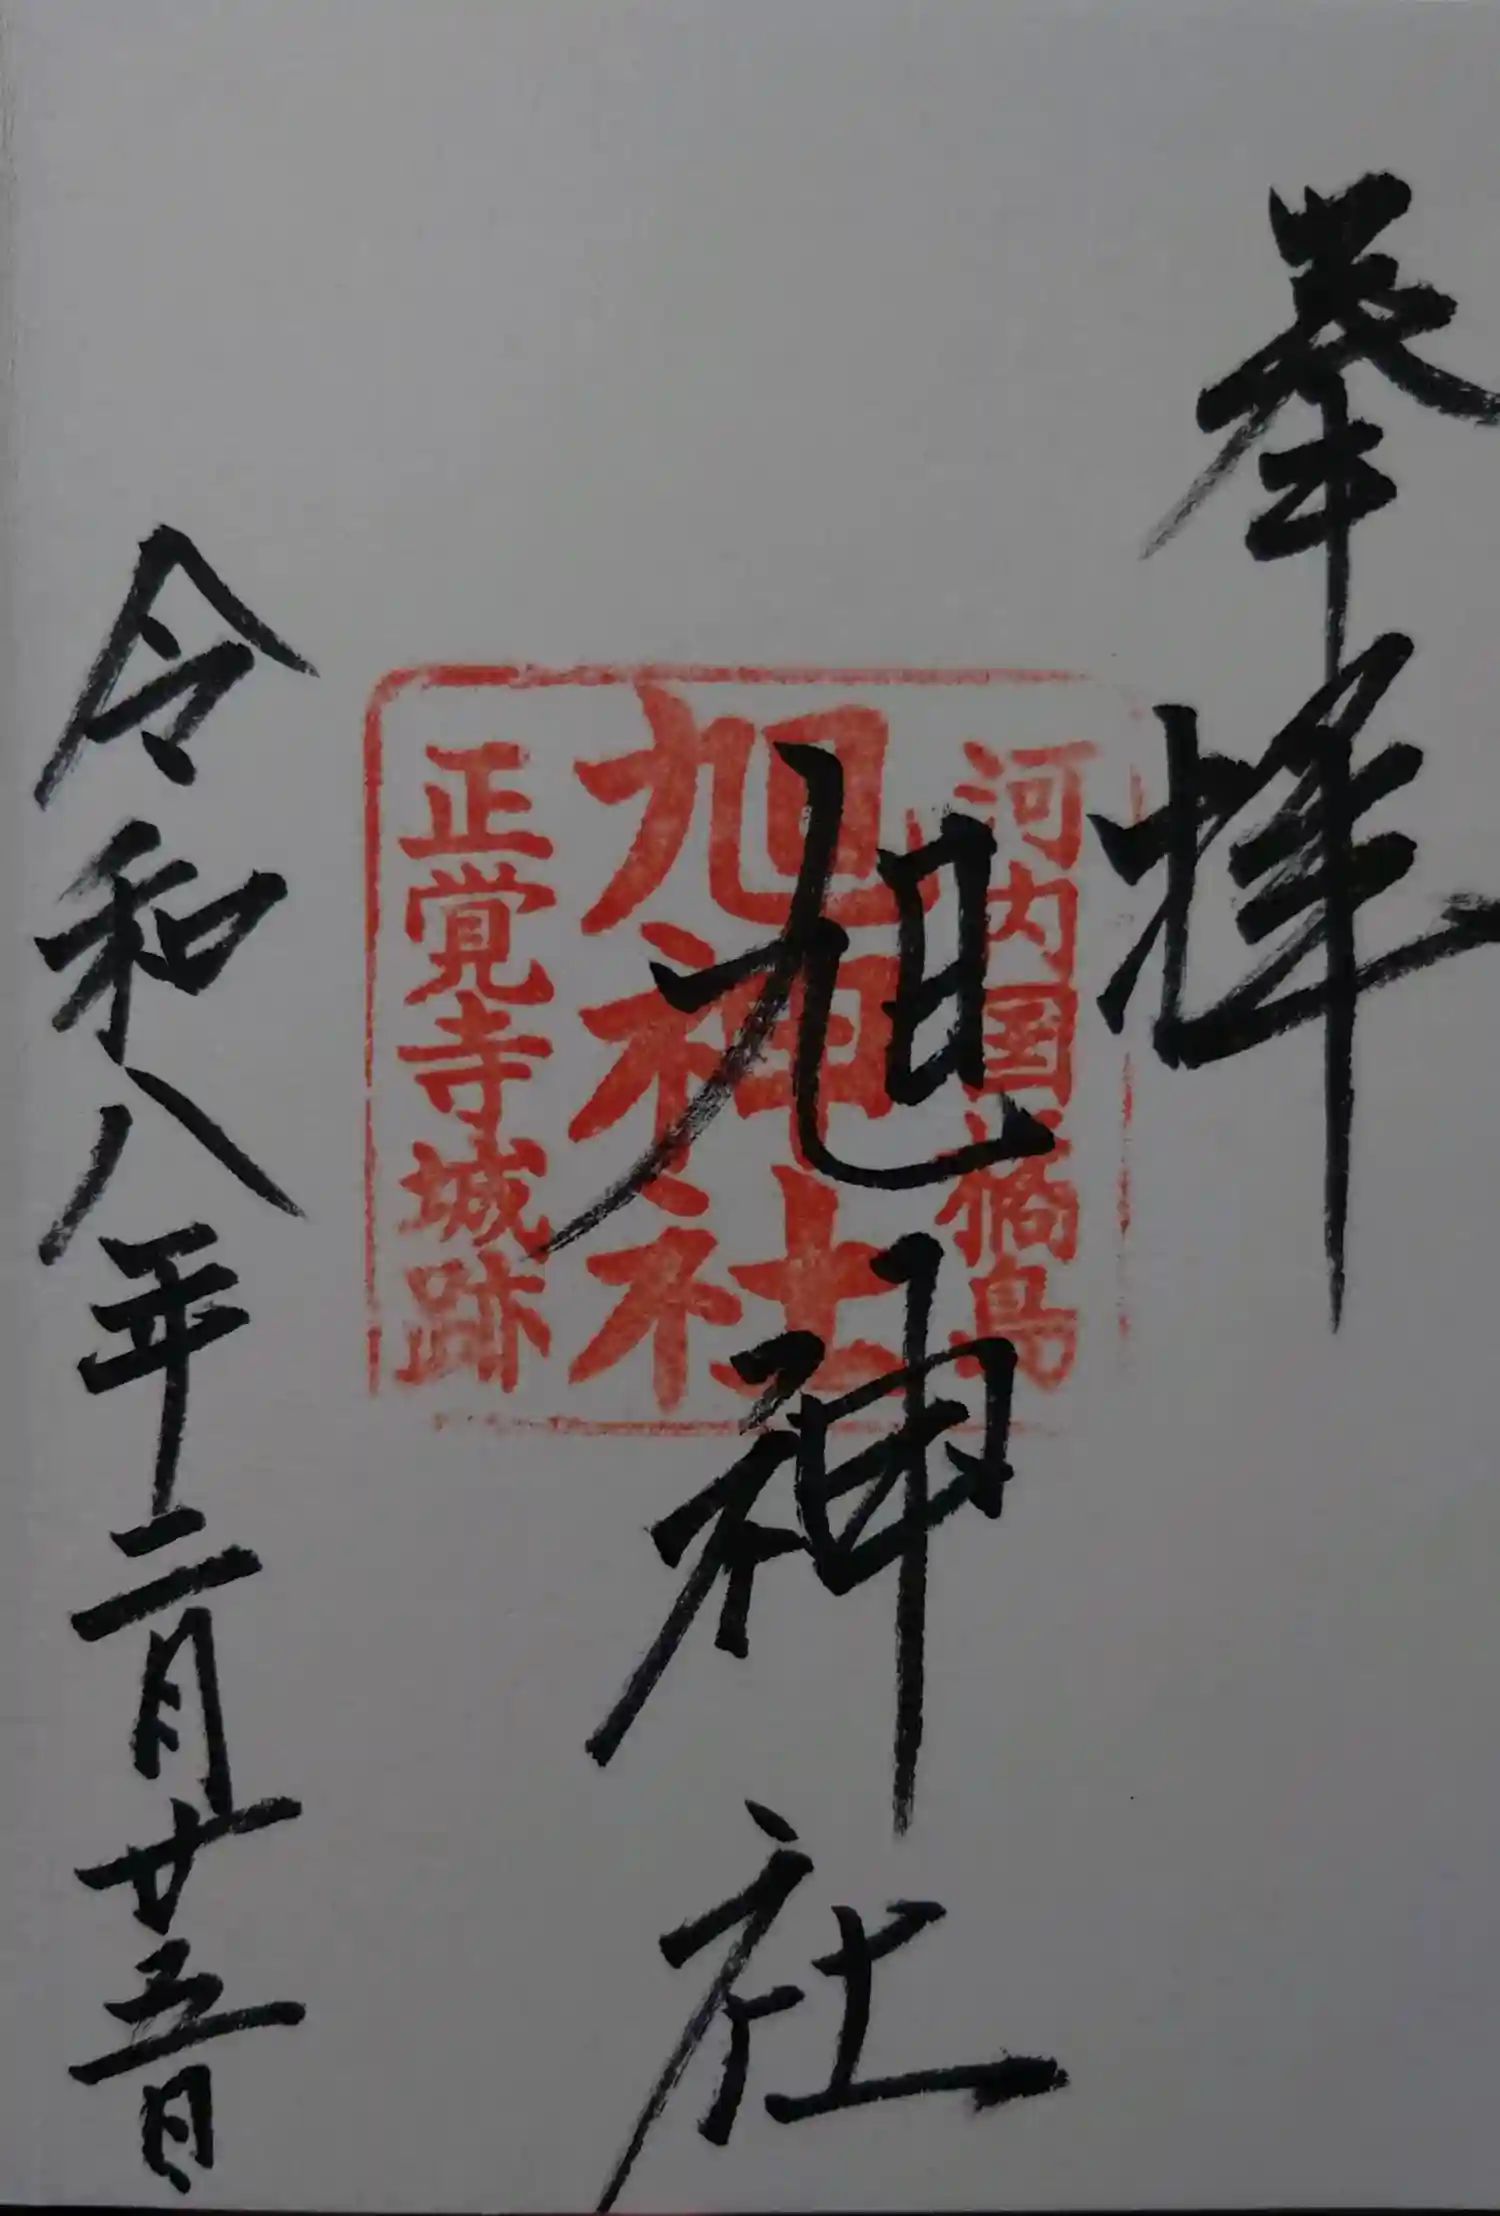 奉拝
河内国橘島
旭神社
旭神社
正覚寺城跡
令和八年二月廿五日